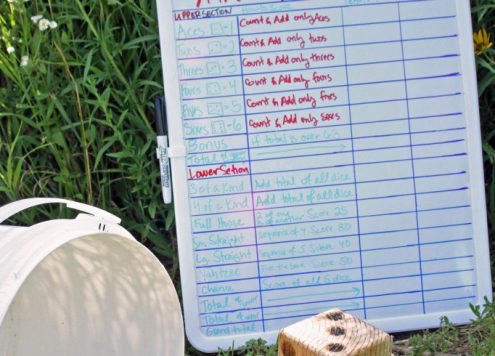 UPPER SECTION
Aces =1 Count & Add only Aces
Twos =2 Count & Add only twos
Threes =3 Count & Add only threes
Fours =4 Count & Add only fours
Fives =5 Count & Add only fives
Sixes =6 Count & Add only Sixes
Bonus If total is over 63
Total
Lower Setion
3 of a Kind Add total of all dice
4 of a Kind Add total of all dice
Full House 2 of any 3 of another Score 25
Sm Straight Sequence of 4 Score 30
Lg Straight Sequence of 5 Score 40
Yahtzee Score 50
Chance Score of all 5 dice
Total of
Total of
Grand total